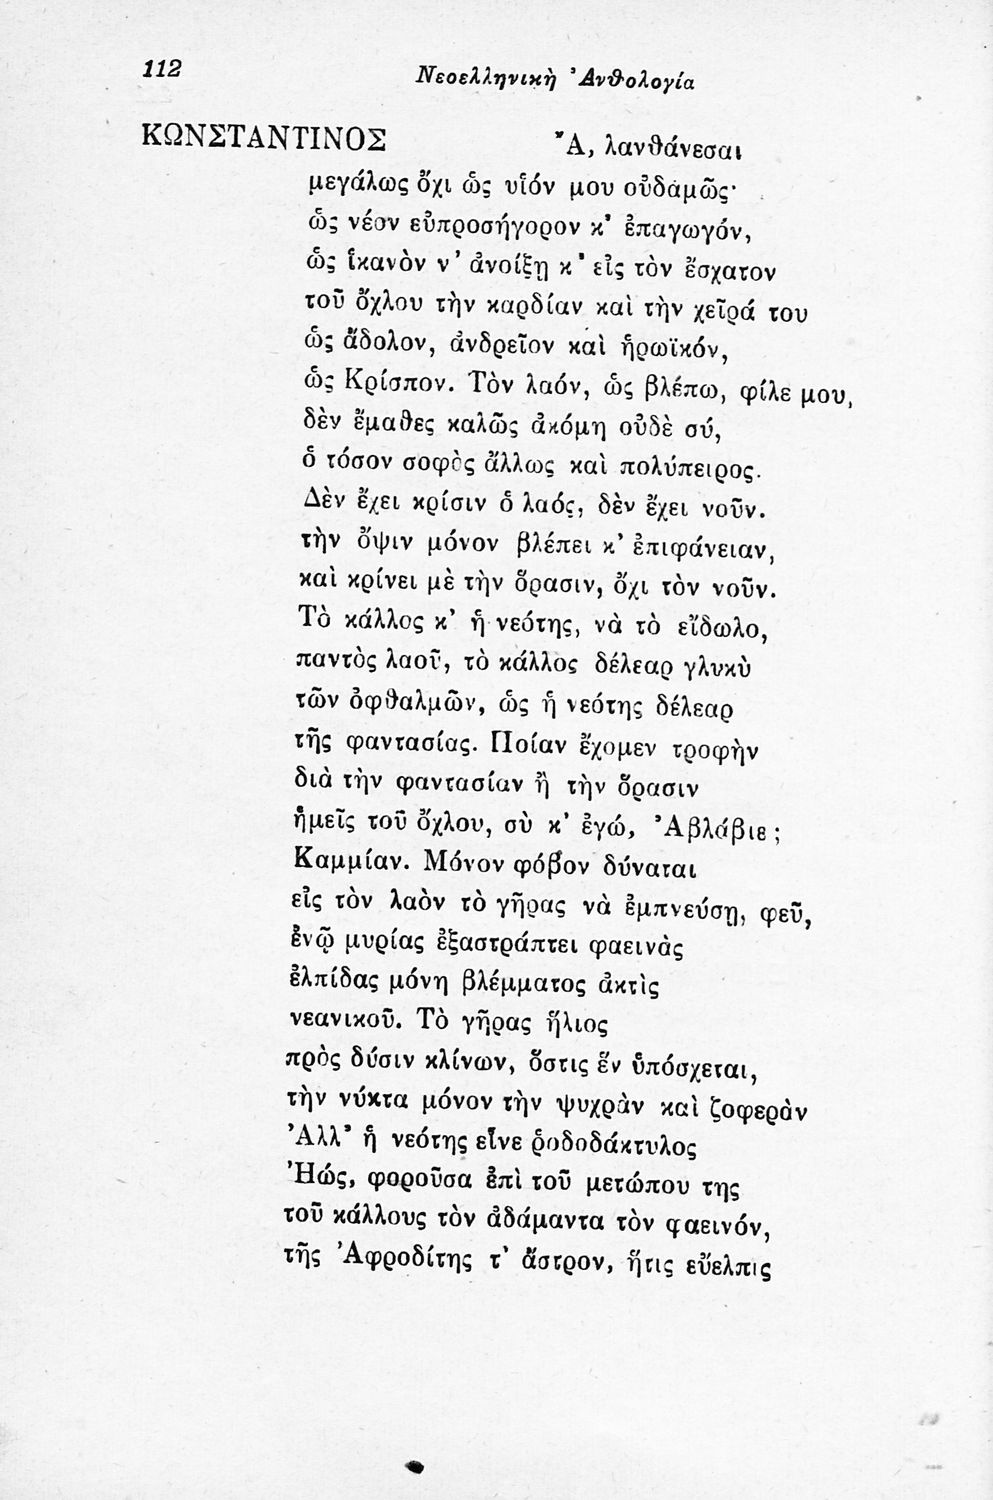 112
Νεοελληνικὴ Ἀνθολογία
ΚΩΝΣΤΑΝΤΙΝΟΣ Ἄ, λανθάνεσαι
μεγάλως ὄχι ὡς υἱόν μου οὐδαμῶς·
ὡς νέον εὐπροσήγορον κ' ἐπαγωγόν,
ὡς ἱκανὸν ν' ἀνοίξῃ κ' εἰς τὸν ἔσχατον
τοῦ ὄχλου τὴν καρδίαν καὶ τὴν χεῖρά του
ὡς ἄδολον, ἀνδρεῖον καὶ ἡρωϊκόν,
ὡς Κρίσπον. Τὸν λαόν, ὡς βλέπω, φίλε μου,
δὲν ἔμαθες καλῶς ἀκόμη οὐδὲ σύ,
ὁ τόσον σοφὸς ἄλλως καὶ πολύπειρος.
Δὲν ἔχει κρίσιν ὁ λαός, δὲν ἔχει νοῦν.
τὴν ὄψιν μόνον βλέπει κ' ἐπιφάνειαν,
καὶ κρίνει μὲ τὴν ὅρασιν, ὄχι τὸν νοῦν.
Τὸ κάλλος κ' ἡ νεότης, νὰ τὸ εἴδωλο,
παντὸς λαοῦ, τὸ κάλλος δέλεαρ γλυκὺ
τῶν ὀφθαλμῶν, ὡς ἡ νεότης δέλεαρ
τῆς φαντασίας. Ποίαν ἔχομεν τροφὴν
διὰ τὴν φαντασίαν ἢ τὴν ὅρασιν
ἡμεῖς τοῦ ὄχλου, σὺ κ' ἐγώ, Ἀβλάβιε;
Καμμίαν. Μόνον φόβον δύναται
εἰς τὸν λαὸν τὸ γῆρας νὰ ἐμπνεύσῃ, φεῦ,
ἐνῷ μυρίας ἐξαστράπτει φαεινὰς
ἐλπίδας μόνη βλέμματος ἀκτὶς
νεανικοῦ. Τὸ γῆρας ἥλιος
πρὸς δύσιν κλίνων, ὅστις ἕν ὑπόσχεται,
τὴν νύκτα μόνον τὴν ψυχρὰν καὶ ζοφερὰν
Ἀλλ' ἡ νεότης εἶνε ῥοδοδάκτυλος
Ἠώς, φοροῦσα ἐπὶ τοῦ μετώπου της
τοῦ κάλλους τὸν ἀδάμαντα τὸν φαεινόν,
τῆς Ἀφροδίτης τ' ἄστρον, ἥτις εὔελπις